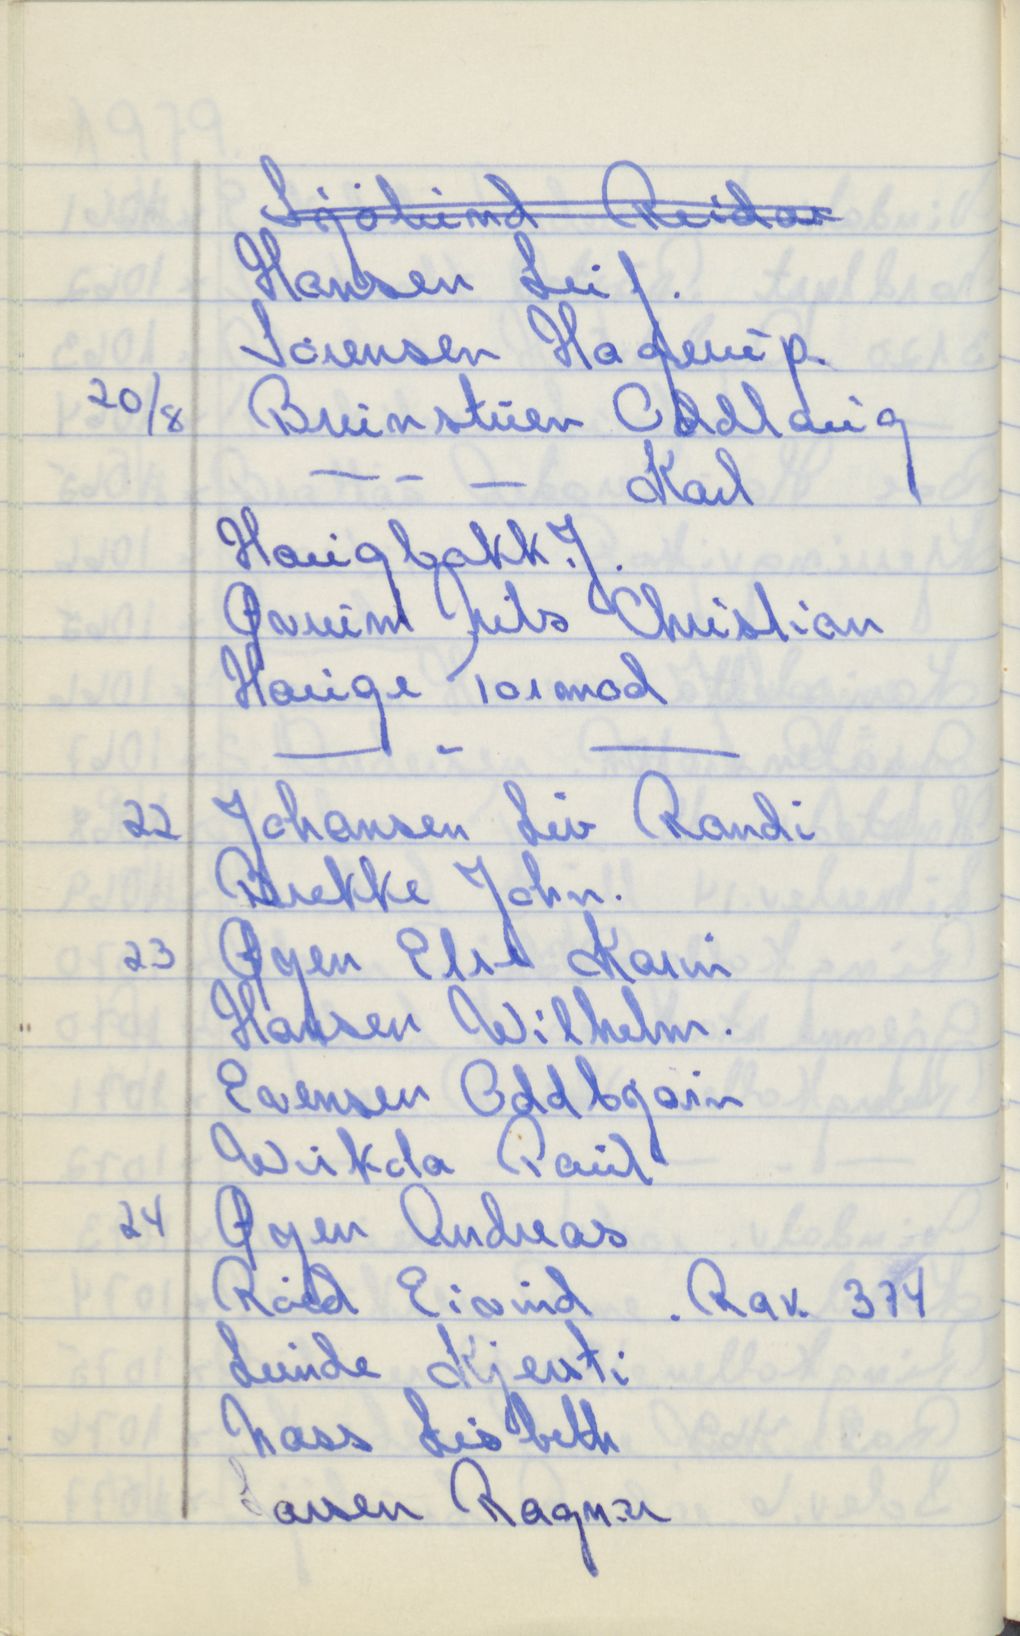 Sjölund Reidar
Hansen Leif.
Sörensen Hagerup.
20/8 Bruinstuen Oddlaug
— - — Karl
Haugbakk. J.
Øvrum Nils Christian
Hauge Tormod
— - —
22 Johansen Liv Randi
Brekke John.
23 Øyen Else Karin
Hansen Wilhelm.
Evensen Oddbjørn
Paul
24 Øyen Andreas
Röed Eivind . Rav. 374
Lunde Kjersti
Nass Lisbeth
Larsen Ragnar